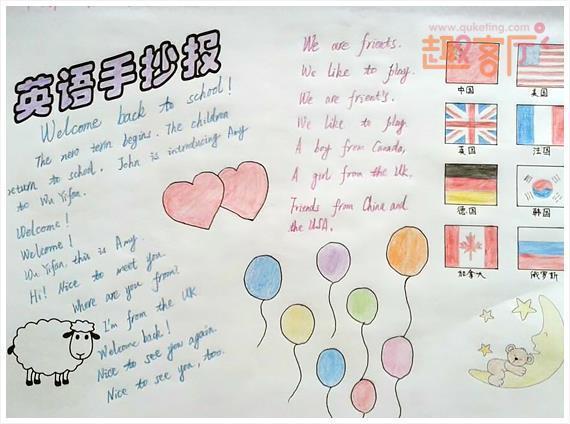 www.quketing.com
趣客厅
英语手抄报
Welcome back to school!
The new term begins. The children
return to school. John is introducing Amy
to Wu Yifan.
Welcome!
Welcome!
Wu Yifan, this is Amy.
Hi! Nice to meet you.
Where are you from?
I'm from the UK.
Welcome back!
Nice to see you again.
Nice to see you, too.
We are friends.
We like to play.
We are friend's.
We like to play.
A boy from Canada,
A girl from the UK.
Friends from China and
the USA.
中国
美国
英国
法国
德国
韩国
加拿大
俄罗斯